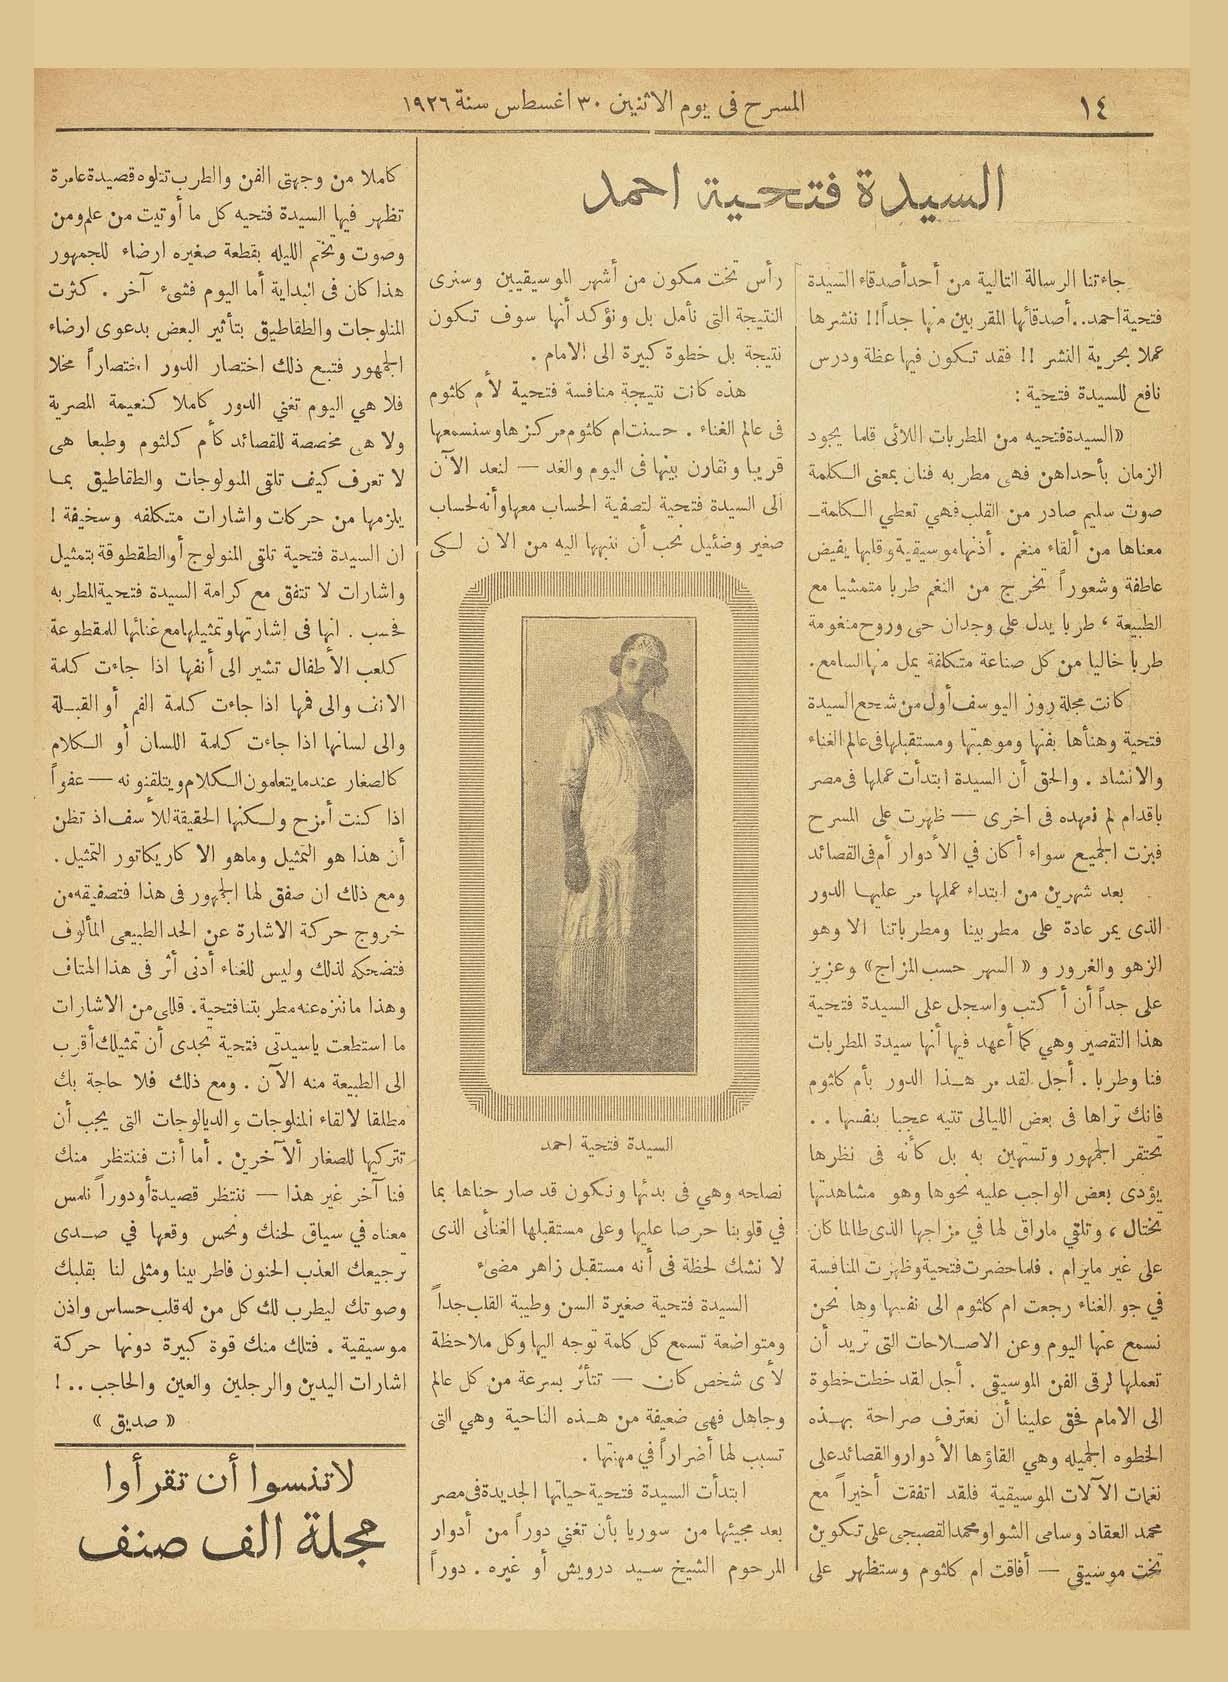 ١٤
المسرح فى يوم الاثنين ٣٠ اغسطس سنة ١٩٢٦
السيدة فتحية احمد
جاءتنا الرسالة التالية من أحد أصدقاء السيدة
فتحية احمد.. أصدقائها المقربين منها جداً!! ننشرها
عملا بحرية النشر !! فقد تكون فيها عظة ودرس
نافع للسيدة فتحية :
«السيدة فتحيه من المطربات اللائى قلما يجود
الزمان بأحداهن فهى مطربه فنان بمعنى الكلمة
صوت سليم صادر من القلب فهي تعطي الكلمة
معناها من ألقاء منغم . أذنها موسيقية وقلبها يفيض
عاطفة وشعوراً تخرج من النغم طربا متمشيا مع
الطبيعة ، طربا يدل على وجدان حى وروح منغومة
طربا خاليا من كل صناعة متكلفة يمل منها السامع.
كانت مجلة روز اليوسف أول من شجع السيدة
فتحية وهنأها بفنها وموهبتها ومستقبلها فى عالم الغناء
والانشاد . والحق أن السيدة ابتدأت عملها فى مصر
باقدام لم نعهده فى اخرى — ظهرت على المسرح
فبزت الجميع سواء أكان في الأدوار أم فى القصائد
بعد شهرين من ابتداء عملها مر عليها الدور
الذى يمر عادة على مطربينا ومطرباتنا الا وهو
الزهو والغرور و « السهر حسب المزاج» وعزيز
على جداً أن أكتب واسجل على السيدة فتحية
هذا التقصير وهي كما أعهد فيها أنها سيدة المطربات
فنا وطربا . أجل لقد مر هذا الدور بأم كلثوم
فانك تراها فى بعض الليالى تتيه عجبا بنفسها . .
تحتقر الجمهور وتستهين به بل كأنه فى نظرها
يؤدى بعض الواجب عليه نحوها وهو مشاهدتها
تختال ، وتلقي ماراق لها في مزاجها الذى طالما كان
على غير مايرام . فلما حضرت فتحية وظهرت المنافسة
في جو الغناء رجعت ام كلثوم الى نفسها وها نحن
نسمع عنها اليوم وعن الاصلاحات التى تريد أن
تعملها لرقى الفن الموسيقى . أجل لقد خطت خطوة
الى الامام فحق علينا أن نعترف صراحة بهذه
الخطوه الجميله وهي القاؤها الأدوار والقصائد على
نغمات الآلات الموسيقية فلقد اتفقت أخيراً مع
محمد العقاد وسامى الشوا ومحمد القصبجى على تكوين
تخت موسيقي — أفاقت ام كلثوم وستظهر على
رأس تخت مكون من أشهر الموسيقيين وسنرى
النتيجة التى نأمل بل ونؤكد أنها سوف تكون
نتيجة بل خطوة كبيرة الى الامام .
هذه كانت نتيجة منافسة فتحية لأم كلثوم
فى عالم الغناء . حسنت ام كلثوم مركزها وسنسمعها
قريبا ونقارن بينها فى اليوم والغد — لنعد الآن
الى السيدة فتحية لتصفية الحساب معها وأنه لحساب
صغير وضئيل نحب أن ننبهها اليه من الآن لكى
السيدة فتحية احمد
نصالحه وهي فى بدئها ونكون قد صارحناها بما
في قلوبنا حرصا عليها وعلى مستقبلها الغنائى الذى
لا نشك لحظة فى أنه مستقبل زاهر مضىء
السيدة فتحية صغيرة السن وطيبة القلب جداً
ومتواضعة تسمع كل كلمة توجه اليها وكل ملاحظة
لأى شخص كان — تتأثر بسرعة من كل عالم
وجاهل فهى ضعيفة من هذه الناحية وهي التى
تسبب لها أضراراً في مهنتها .
ابتدأت السيدة فتحية حياتها الجديدة فى مصر
بعد مجيئها من سوريا بأن تغني دوراً من أدوار
المرحوم الشيخ سيد درويش أو غيره . دوراً
كاملا من وجهتى الفن والطرب تتلوه قصيدة عامرة
تظهر فيها السيدة فتحيه كل ما أوتيت من علم ومن
وصوت وتختم الليله بقطعة صغيره ارضاء للجمهور
هذا كان فى البداية أما اليوم فشىء آخر . كثرت
المنلوجات والطقاطيق بتأثير البعض بدعوى ارضاء
الجمهور فتبع ذلك اختصار الدور اختصاراً مخلا
فلا هي اليوم تغني الدور كاملا كنعيمة المصرية
ولا هى مخصصة للقصائد كأم كلثوم وطبعا هى
لا تعرف كيف تلقى المنولوجات والطقاطيق بما
يلزمها من حركات واشارات متكلفه وسخيفة !
ان السيدة فتحية تلقى المنولوج أو الطقطوقة بتمثيل
واشارات لا تتفق مع كرامة السيدة فتحية المطربه
فحسب . انها فى إشارتها وتمثيلها مع غنائها للمقطوعة
كلعب الأطفال تشير الى أنفها اذا جاءت كلمة
الانف والى فمها اذا جاءت كلمة الفم أو القبلة
والى لسانها اذا جاءت كلمة اللسان أو الكلام
كالصغار عندما يتعلمون الكلام ويتلقنونه — عفواً
اذا كنت أمزح ولكنها الحقيقة للأسف اذ تظن
أن هذا هو التمثيل وماهو الا كاريكاتور التمثيل.
ومع ذلك ان صفق لها الجمهور فى هذا فتصفيقه من
خروج حركة الاشارة عن الحد الطبيعى المألوف
فتضحكه لذلك وليس للغناء أدنى أثر فى هذا الهتاف
وهذا ماننزه عنه مطربتنا فتحية. قللى من الاشارات
ما استطعت ياسيدتى فتحية تجدى أن تمثيلك أقرب
الى الطبيعة منه الآن . ومع ذلك فلا حاجة بك
مطلقا لالقاء المنلوجات والديالوجات التى يجب أن
تتركيها للصغار الآخرين . أما أنت فننتظر منك
فنا آخر غير هذا — ننتظر قصيدة أو دوراً نلمس
معناه في سياق لحنك ونحس وقعها في صدى
ترجيعك العذب الحنون فاطربينا ومثلى لنا بقلبك
وصوتك ليطرب لك كل من له قلب حساس واذن
موسيقية . فتلك منك قوة كبيرة دونها حركة
اشارات اليدين والرجلين والعين والحاجب .. !
« صديق »
لاتنسوا أن تقرأوا
مجلة الف صنف